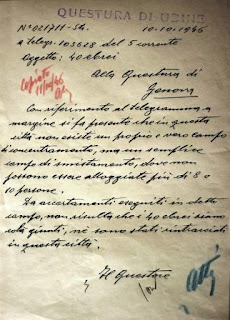 QUESTURA DI UDINE
N° 021711-S4. 10.10-1946
a telegr. 103628 del 5 corrente
Oggetto: 40 ebrei
Alla Questura di
Genova
Con riferimento al telegramma a
margine si fa presente che in questa
città non esiste un proprio e vero campo
di concentramento, ma un semplice
campo di smistamento, dove non
possono essere alloggiate più di 8 o
10 persone.
Da accertamenti eseguiti in detto
campo, non risulta che i 40 ebrei siano
colà giunti, nè sono stati rintracciati
in questa città.
Il Questore
atti